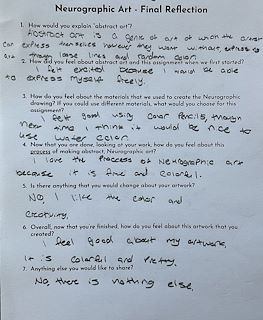 Neurographic Art - Final Reflection
1. How would you explain "abstract art"?
Abstract art is a genre of art of which the artist
can express themselves however they want without, expression
are though loose lines and random color.
2. How did you feel about abstract art and this assignment when we first started?
I felt excited because I would be able
to express myself freely.
3. How do you feel about the materials that we used to create the Neurographic
drawing? If you could use different materials, what would you choose for this
assignment?
I felt good using color Pencils, though
next time I think it would be nice to
use water color.
4. Now that you are done, looking at your work, how do you feel about this
process of making abstract, Neurographic art?
I love the process of Neurographic art
because it is free and colorful.
5. Is there anything that you would change about your artwork?
No, I like the color and
creativity.
6. Overall, now that you're finished, how do you feel about this artwork that you
created?
I feel good about my artwork,
it is colorful and Pretty.
7. Anything else you would like to share?
No, there is nothing else.